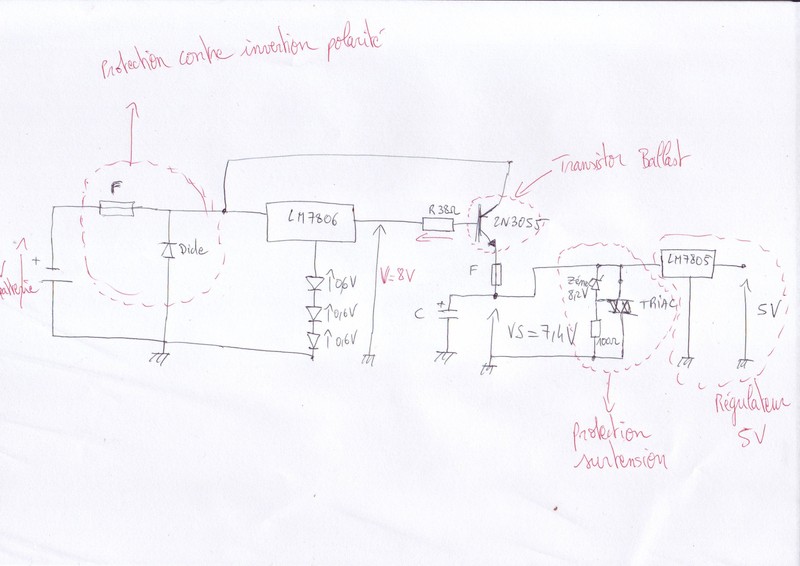 Protection contre invertion polarité
Transistor Ballast
F
LM7806
R38Ω
2N3055
Diode
+
V batterie
0,6V
0,6V
0,6V
V=8V
F
C
+
VS=7,4V
Zéner
8,2V
TRIAC
100Ω
LM7805
5V
Régulateur
5V
Protection
surtension